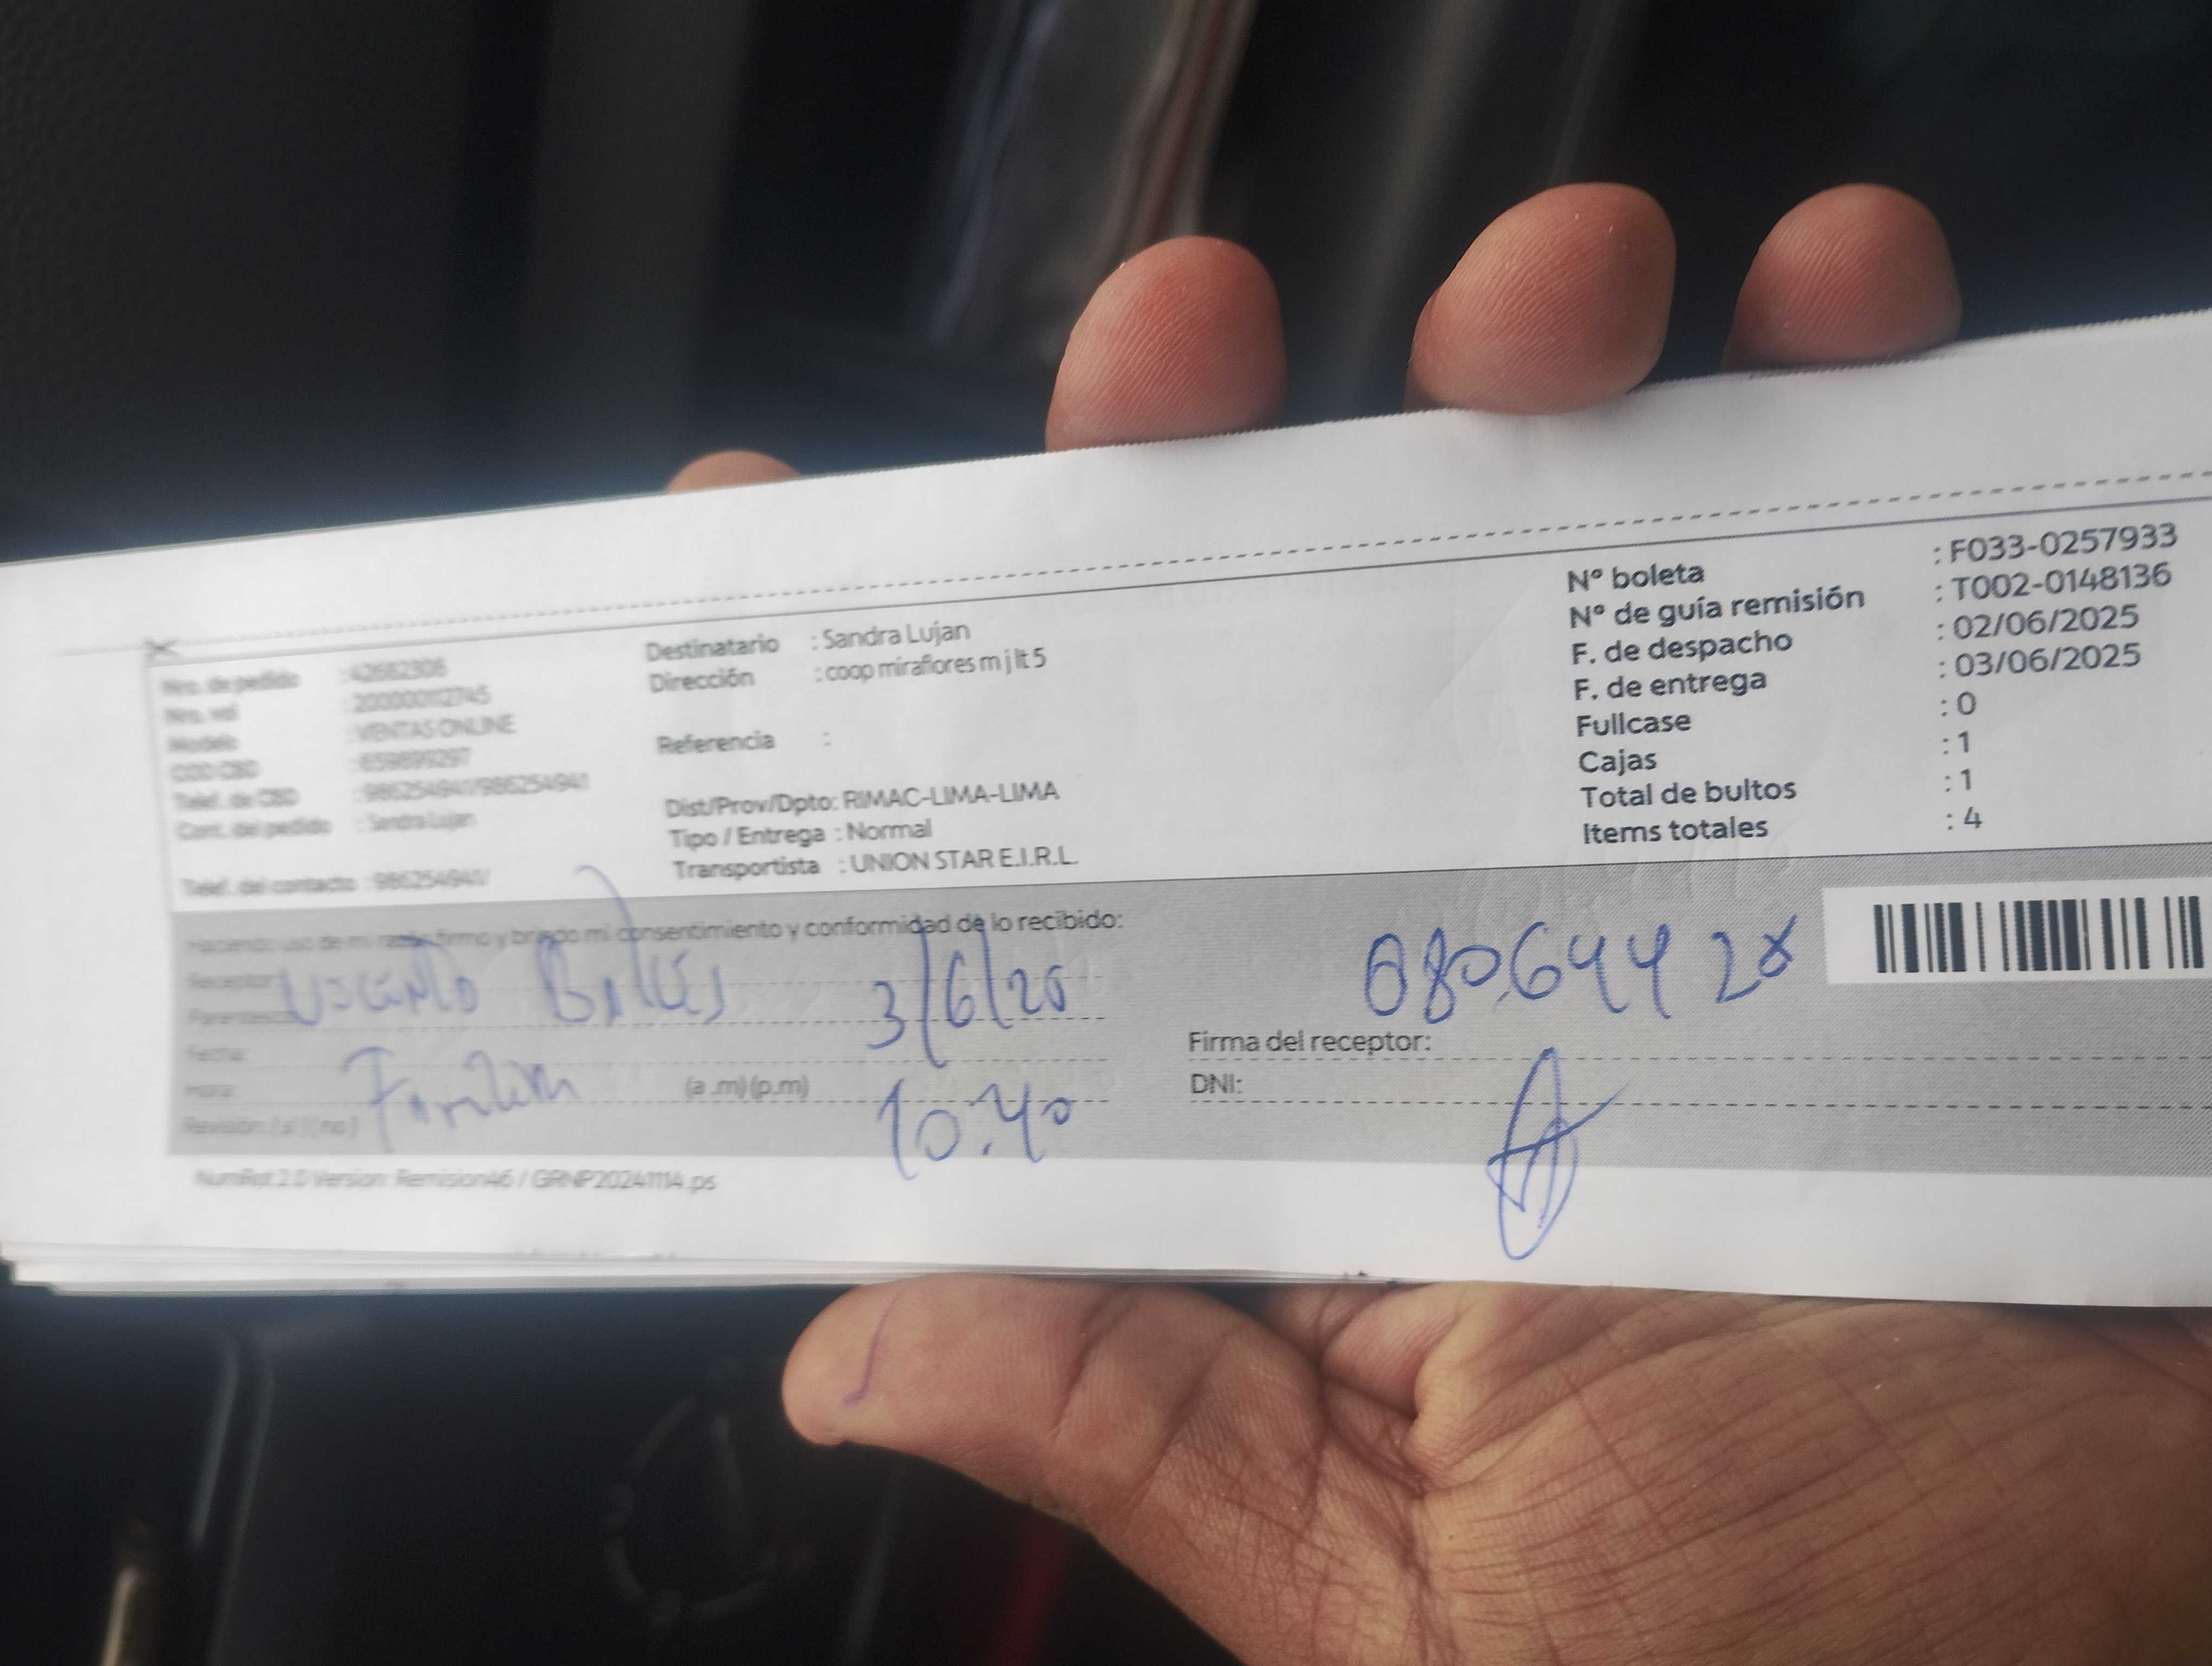 Nro. de pedido : 42682308
Nro. val : 200000112745
Modelo : VENTAS ONLINE
COD CBD : 659899297
Telef. de CBD : 986254941/986254941
Cont. del pedido : Sandra Lujan
Telef. del contacto : 986254941/
Destinatario : Sandra Lujan
Dirección : coop miraflores m j lt 5
Referencia :
Dist/Prov/Dpto: RIMAC-LIMA-LIMA
Tipo / Entrega : Normal
Transportista : UNION STAR E.I.R.L.
N° boleta : F033-0257933
N° de guía remisión : T002-0148136
F. de despacho : 02/06/2025
F. de entrega : 03/06/2025
Fullcase : 0
Cajas : 1
Total de bultos : 1
Items totales : 4
Haciendo uso de mi razón firmo y brindo mi consentimiento y conformidad de lo recibido:
Receptor:
Parentesco:
3/6/25
Fecha:
Hora: (a.m) (p.m)
10:40
Revisión: (si) (no)
Firma del receptor:
DNI:
NumRot 2.0 Version: Remision46 / GRNP20241114.ps